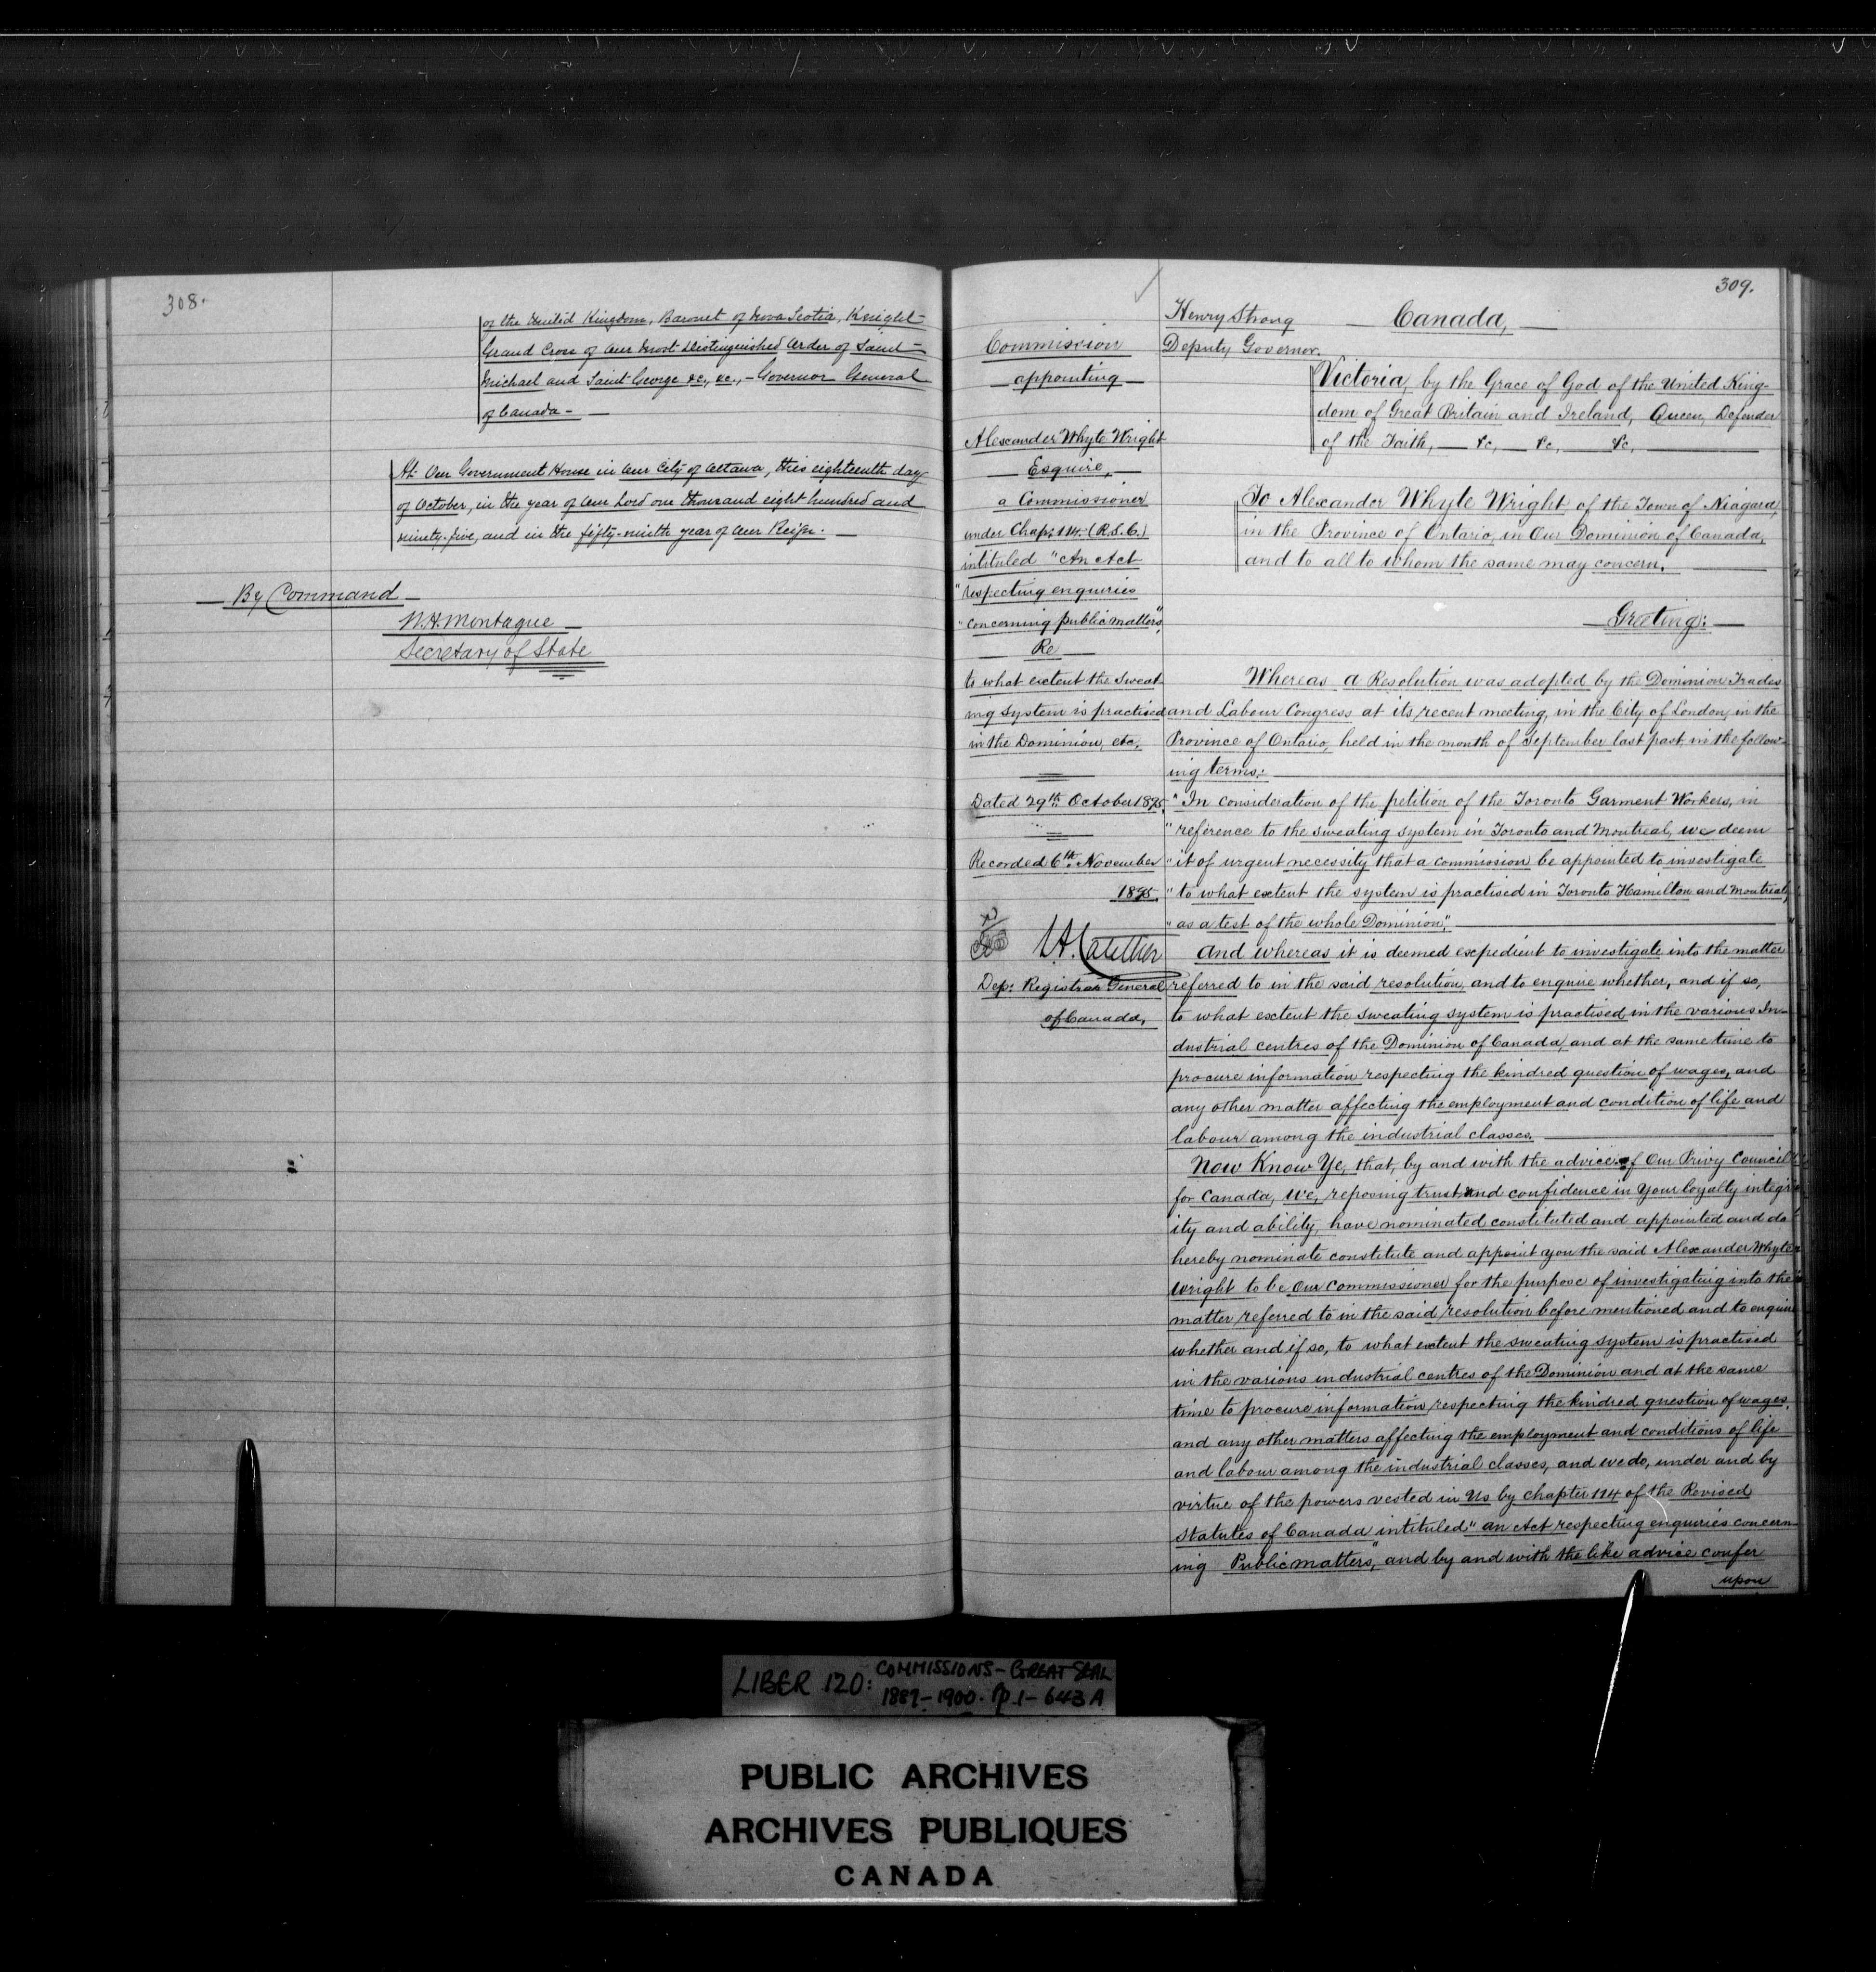 308.
of the United Kingdom, Baronet of Nova Scotia, Knight
Grand Cross of Our Most Distinguished Order of Saint
Michael and Saint George &c., &c., - Governor General
of Canada -
At Our Government House in Our City of Ottawa, this eighteenth day
of October, in the year of Our Lord one thousand eight hundred and
ninety-five, and in the fifty-ninth year of Our Reign.
By Command
W.H. Montague
Secretary of State
309.
Commission
appointing
Alexander Whyte Wright
Esquire,
a Commissioner
under Chap: 114. (R.S.C.)
intituled "An Act
"respecting enquiries
"concerning public matters",
Re
to what extent the sweat-
ing system is practised
in the Dominion, etc,
Dated 29th October 1895.
Recorded 6th November
1895.
Dep: Registrar General
of Canada,
Henry Strong
Deputy Governor.
Canada,
Victoria, by the Grace of God of the United King-
dom of Great Britain and Ireland, Queen, Defender
of the Faith, &c, &c, &c,
To Alexander Whyte Wright, of the Town of Niagara,
in the Province of Ontario, in Our Dominion of Canada,
and to all to whom the same may concern,
Greeting:
Whereas a Resolution was adopted by the Dominion Trades
and Labour Congress at its recent meeting, in the City of London, in the
Province of Ontario, held in the month of September last past, in the follow-
ing terms:
"In consideration of the petition of the Toronto Garment Workers, in
"reference to the sweating system in Toronto and Montreal, we deem
"it of urgent necessity that a commission be appointed to investigate
"to what extent the system is practised in Toronto Hamilton and Montreal,
"as a test of the whole Dominion",
And whereas it is deemed expedient to investigate into the matter
referred to in the said resolution, and to enquire whether, and if so,
to what extent the sweating system is practised in the various In-
dustrial centres of the Dominion of Canada, and at the same time to
procure information respecting the kindred question of wages, and
any other matter affecting the employment and condition of life and
labour among the industrial classes.
Now Know Ye, that, by and with the advice of Our Privy Council
for Canada, We, reposing trust and confidence in your loyalty integr-
ity and ability, have nominated constituted and appointed and do
hereby nominate constitute and appoint you the said Alexander Whyte
Wright to be Our Commissioner for the purpose of investigating into the
matter referred to in the said resolution before mentioned and to enquire
whether and if so, to what extent the sweating system is practised
in the various industrial centres of the Dominion and at the same
time to procure information respecting the kindred question of wages,
and any other matters affecting the employment and conditions of life
and labour among the industrial classes, and we do, under and by
virtue of the powers vested in Us by chapter 114 of the Revised
Statutes of Canada intituled "an Act respecting enquiries concern-
ing Public matters," and by and with the like advice confer
upon
LIBER 120: COMMISSIONS - GREAT SEAL
1889-1900. pp. 1-643A
PUBLIC ARCHIVES
ARCHIVES PUBLIQUES
CANADA